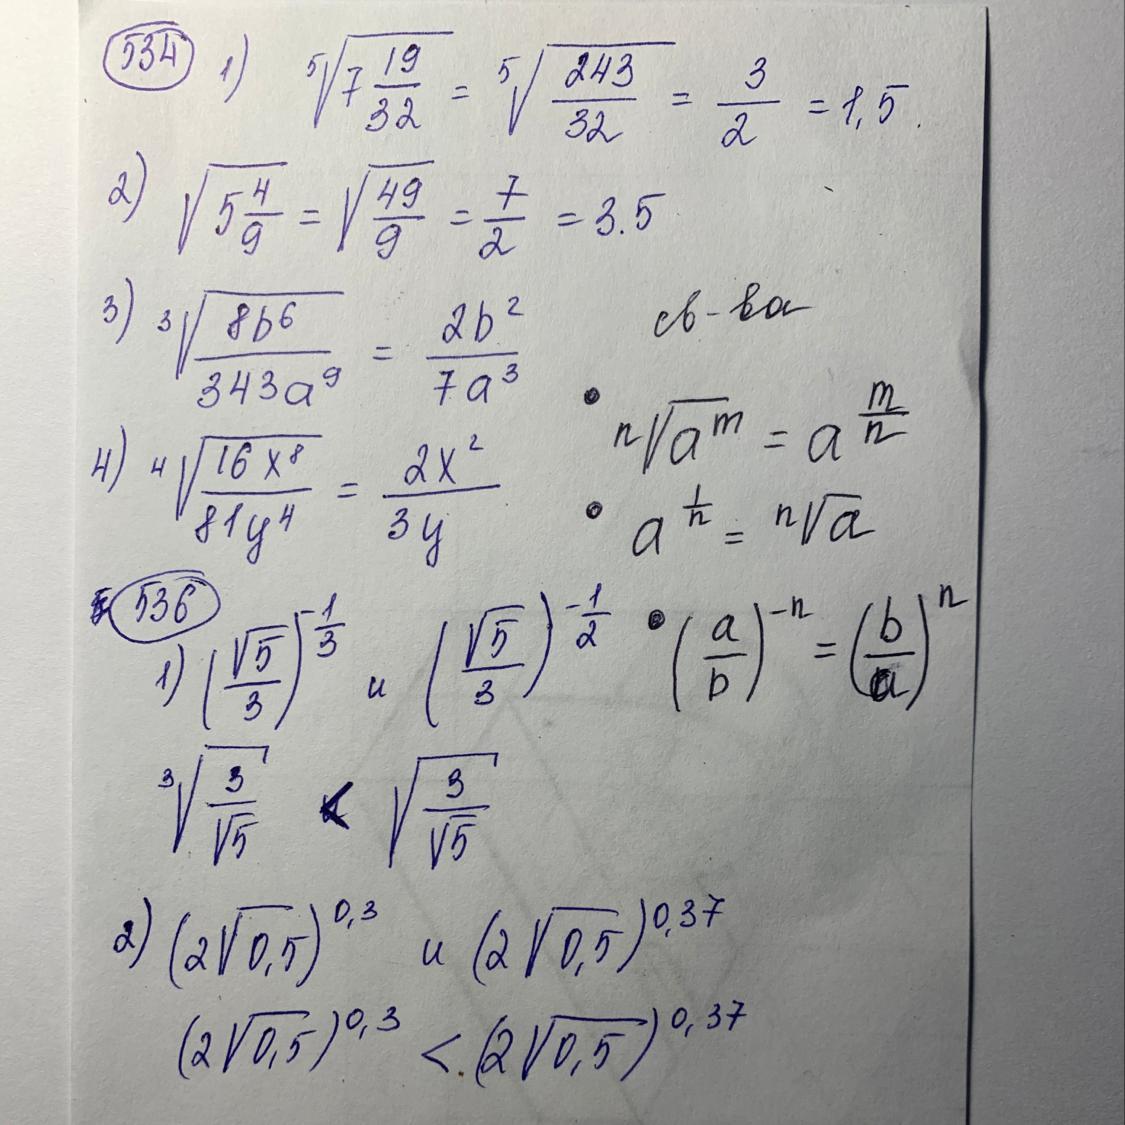 534 1) ⁵√(7 19/32) = ⁵√(243/32) = 3/2 = 1,5.
2) √(5 4/9) = √(49/9) = 7/2 = 3.5
3) ³√(8b⁶/343a⁹) = 2b²/7a³
св-ва
• ⁿ√(aᵐ) = a^(m/n)
4) ⁴√(16x⁸/81y⁴) = 2x²/3y
• a^(1/n) = ⁿ√a
536
1) (√5/3)^(-1/3) и (√5/3)^(-1/2)
• (a/b)^(-n) = (b/a)^n
³√(3/√5) < √(3/√5)
2) (2√0,5)^0,3 и (2√0,5)^0,37
(2√0,5)^0,3 < (2√0,5)^0,37